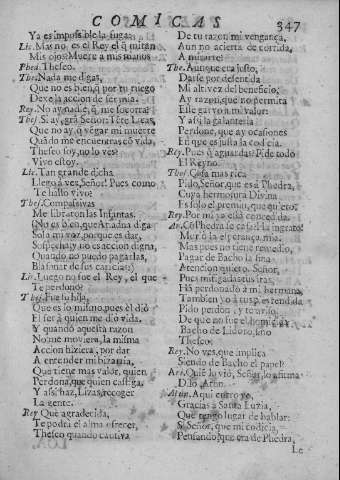 COMICAS
347
Ya es impossible la fuga:
Lic. Mas no es el Rey el q̃ mirán
Mis ojos? Muere a mis manos
Phed. Theseo.
The. Nada me digas,
Que no es bien, q̃ por tu ruego
Dexe la accion de ser mia.
Rey. No ay nadie, q̃ me socorra?
Thes. Si ay, grã Señor: Tête Lícas,
Que no ay, q̃ vēgar mi muerte
Quãdo me encuentras cõ vida.
Theseo soy, no lo ves?
Vivo estoy.
Lic. Tan grande dicha
Llego a ver, Señor! Pues como
Te hallo vivo?
Thes. Compassivas
Me libraton las Infantas.
(No es bien, que Ariadna diga
Sola mi voz, porque es dar,
Sospecha, y no es accion digna,
Quando no puedo pagarlas,
Blasonar de sus caricias;)
Lic. Luego no fue el Rey, el que
Te perdonò?
Thes. Fue su hija,
Que es lo mismo, pues él diò
El ser à quien me diò vida.
Y quando aquesta razon
No me moviera, la misma
Accion hiziera, por dar
A entender mi bizarria,
Que tiene mas valor, quien
Perdona, que quien castiga.
Y assi haz, Lizas, recoger
La gente.
Rey Què agradecida,
Te podrà el alma ofrecer,
Theseo quando cautiva
De tu razon mi vengança,
Aun no acierta de corrida,
A mirarte?
The. Aunque era justo,
Darse por defentida
Mi altivez del beneficio,
Ay razon, que no permita
Esse garvo a mi valor:
Y assi la galanteria
Perdone, que ay ocasiones
En que es justa la codicia.
Rey. Pues q̃ aguardas? Pide todo
El Reyno.
Thes. Cosa mas rica
Pido, Señor, que es à Phedra,
Cuya hermosura Divina
Es solo el premio, que quiero.
Rey. Por mi yo està concedida.
Av. Cõ Phedra se casa? Ha ingrato!
Muriò la esperança mia.
Mas pues no tiene remedio,
Pagar de Bacho la fina
Atencion quiero. Señor,
Pues mitigadas tus iras,
Hà perdonado à mi hermana,
Tambien yo à tus pies tendida
Pido perdon, y te aviso,
De que no fue el homicida
Bacho de Lidoro, sino
Theseo.
Rey. No ves, que implica
Siendo de Bacho el papel?
Ari. Quiē lo viò, Señor, lo afirma
Dilo Atun.
Atun. Aqui curro yo,
Gracias à Santa Luzia,
Que tengo lugar de hablar:
Si Señor, que mi codicia,
Pensando, que era de Phedra,
Le